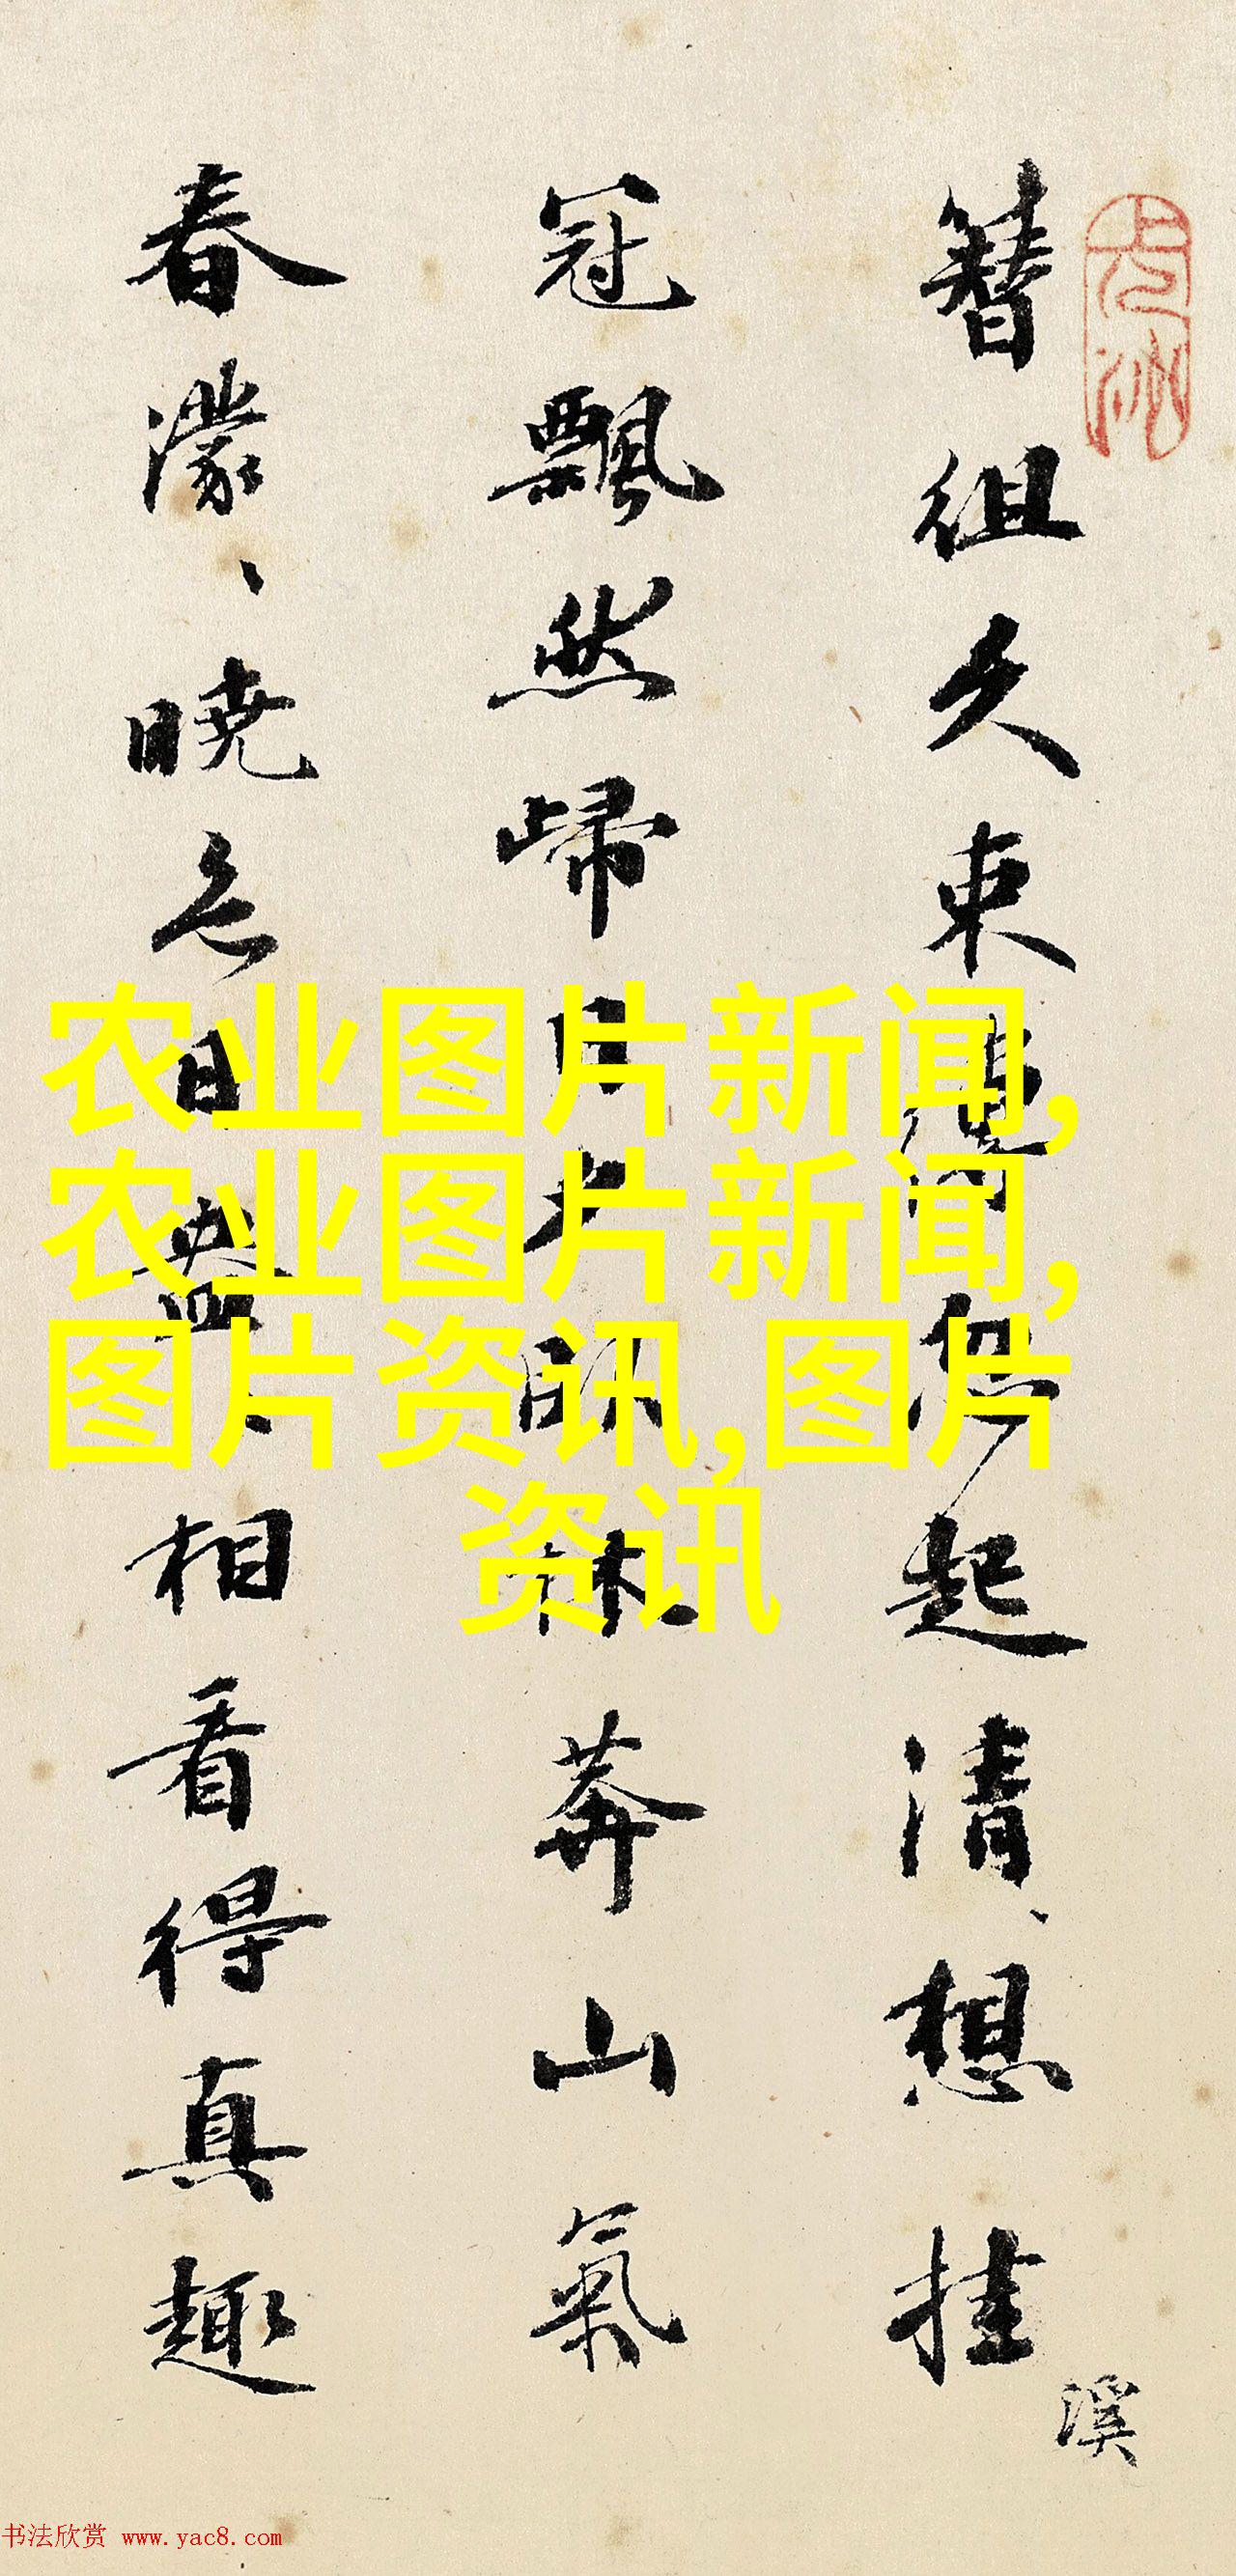 簪組久束忽起清、想挂
溪
冠飄然歸日夕臥林莽山氣
春濛、曉色日盎、相看得真趣
农业图片新闻,
农业图片新闻,
图片资讯,图片
资讯
书法欣赏 www.yac8.com